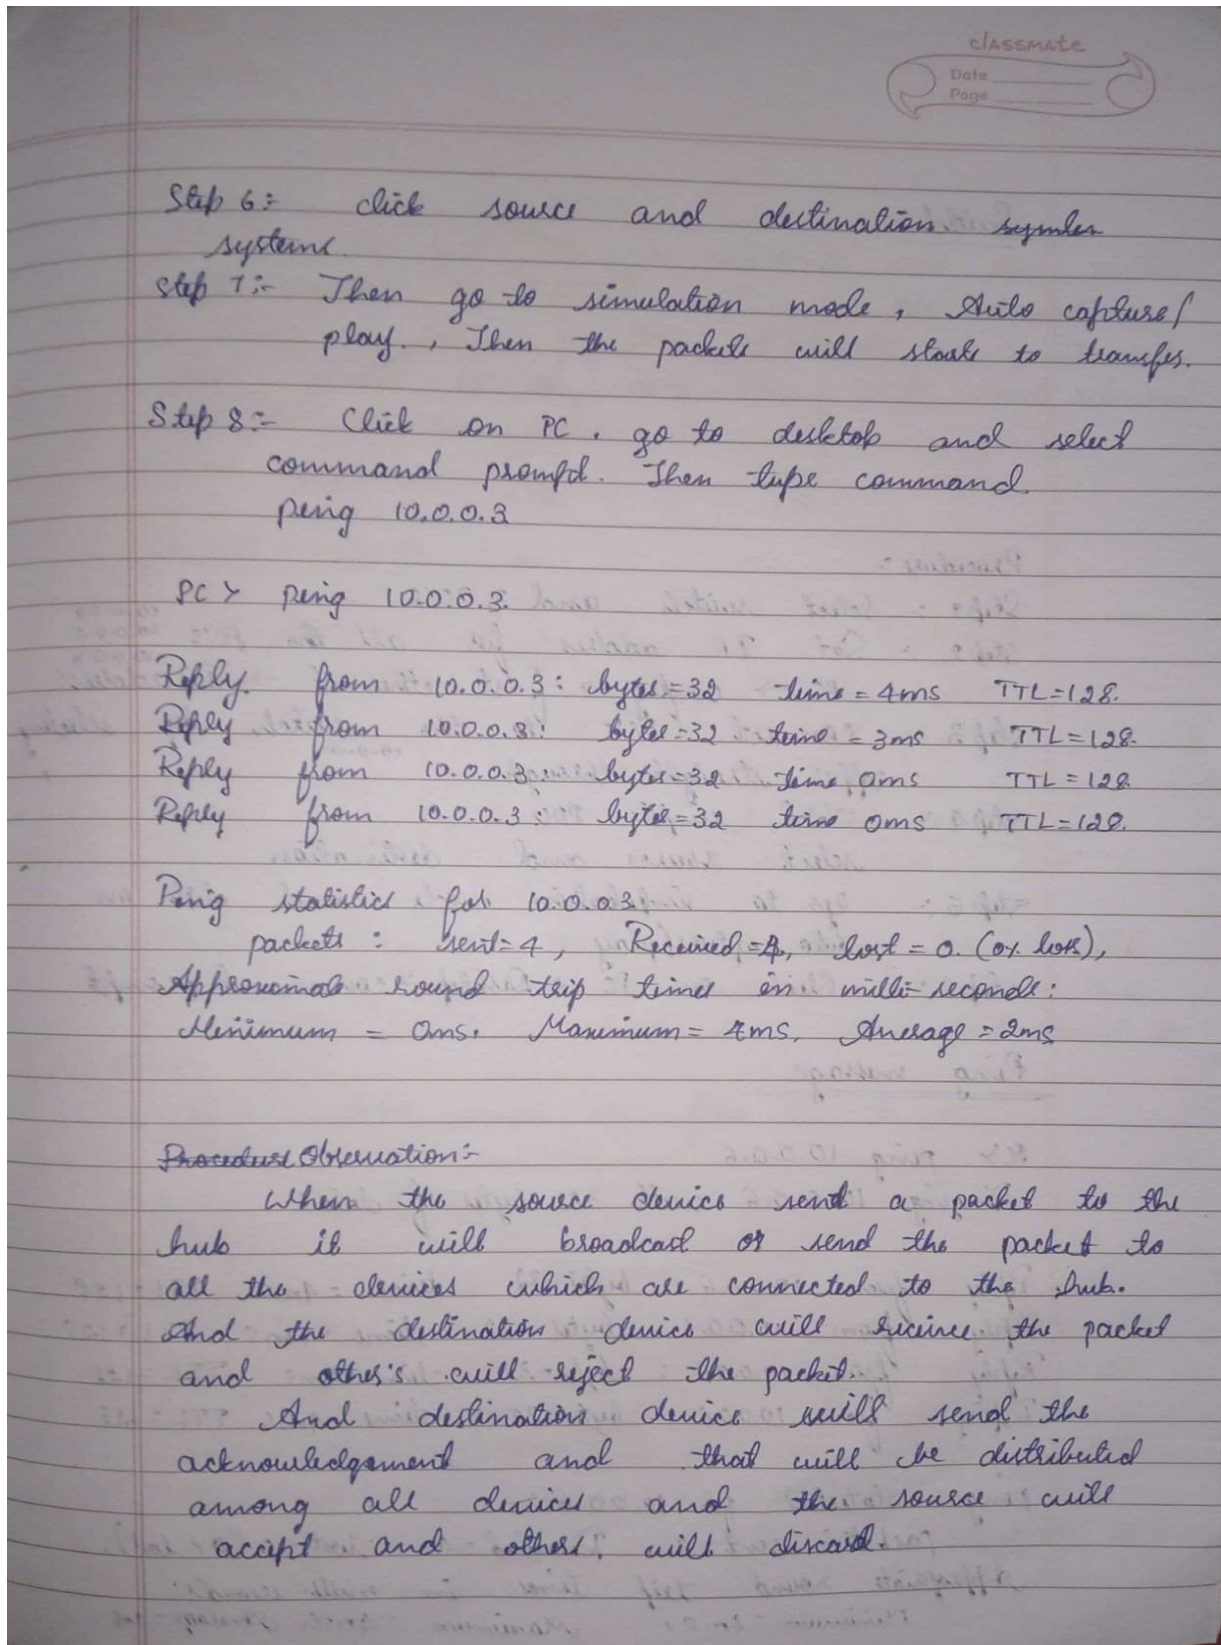 classmate
Date
Page
Step 6:- click source and destination
systems.
Step 7:- Then go to simulation mode, Auto capture/
play., Then the packets will starts to transfer.
Step 8:- Click on PC. go to desktop and select
command prompt. Then type command.
ping 10.0.0.3
PC> ping 10.0.0.3.
Reply. from 10.0.0.3: bytes=32 time=4ms TTL=128.
Reply from 10.0.0.3: bytes=32 time=3ms TTL=128.
Reply from 10.0.0.3: bytes=32 time 0ms TTL=128
Reply from 10.0.0.3: bytes=32 time 0ms TTL=128.
Ping statistics for 10.0.0.3
packets: sent=4, Received=4, lost=0. (0% loss),
Approximate round trip times in milli-seconds:
Minimum = 0ms. Maximum= 4ms, Average=2ms
Procedure Observation:-
When the source device send a packet to the
hub it will broadcast or send the packet to
all the devices which are connected to the hub.
And the destination device will receive the packet
and other's will reject the packet.
And destination device will send the
acknowledgement and that will be distributed
among all devices and the source will
accept and others will discard.